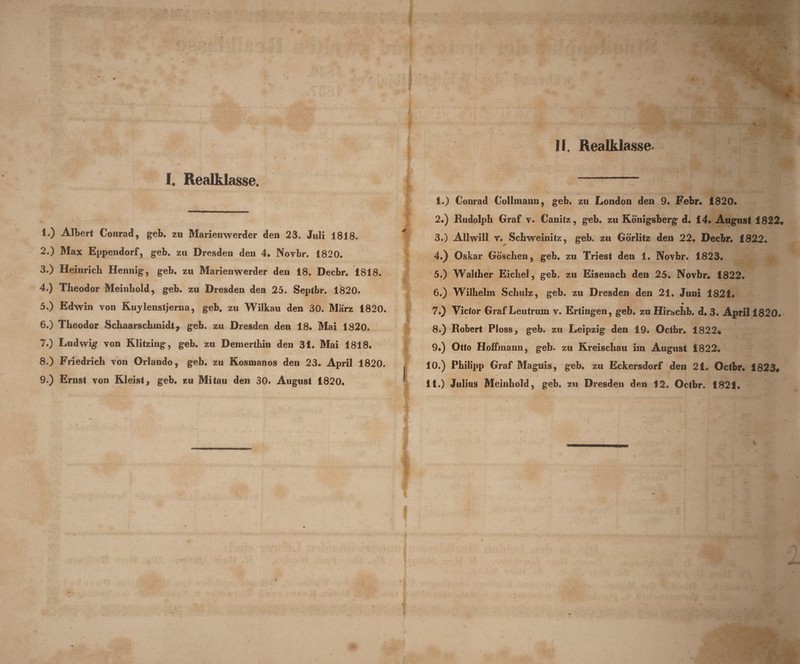 I. Realklasse.
1.) Albert Conrad, geb. zu Marienwerder den 23. Juli 1818.
2.) Max Eppendorf, geb. zu Dresden den 4. Novbr. 1820.
3.) Heinrich Hennig, geb. zu Marienwerder den 18. Decbr. 1818.
4.) Theodor Meinhold, geb. zu Dresden den 25. Septbr. 1820.
5.) Edwin von Kuylenstjerna, geb. zu Wilkau den 30. März 1820.
6.) Theodor Schaarschmidt, geb. zu Dresden den 18. Mai 1820.
7.) Ludwig von Klitzing, geb. zu Demerthin den 31. Mai 1818.
8.) Friedrich von Orlando, geb. zu Kosmanos den 23. April 1820.
9.) Ernst von Kleist, geb. zu Mitau den 30. August 1820.
II. Realklasse.
1.) Conrad Collmann, geb. zu London den 9. Febr. 1820.
2.) Rudolph Graf v. Canitz, geb. zu Königsberg d. 14. August 1822.
3.) Allwill v. Schweinitz, geb. zu Görlitz den 22. Decbr. 1822.
4.) Oskar Göschen, geb. zu Triest den 1. Novbr. 1823.
5.) Walther Eichel, geb. zu Eisenach den 25. Novbr. 1822.
6.) Wilhelm Schulz, geb. zu Dresden den 21. Juni 1821.
7.) Victor Graf Leutrum v. Ertingen, geb. zu Hirschb. d. 3. April 1820.
8.) Robert Ploss, geb. zu Leipzig den 19. Octbr. 1822.
9.) Otto Hoffmann, geb. zu Kreischau im August 1822.
10.) Philipp Graf Magnis, geb. zu Eckersdorf den 21. Octbr. 1823.
11.) Julius Meinhold, geb. zu Dresden den 12. Octbr. 1821.